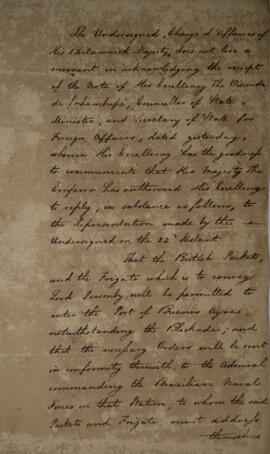 The Undersigned, Chargé d'Affaires of
His Britannick Majesty, does not lose a
moment in acknowledging the receipt
of the Note of His Excellency The Viscount
de Inhambupe, Councellor of State,
Minister, and Secretary of State for
Foreign Affairs, dated yesterday,
wherein His Excellency has the goodness
to communicate that His Majesty The
Emperor has authorized His Excellency
to reply, in substance as follows, to
the Representation made by the
Undersigned on the 22d Instant.
That the British Packets,
and the Frigate which is to convey
Lord Ponsonby, will be permitted to
enter the Port of Buenos Ayres,
notwithstanding the Blockade; and
that the necessary Orders will be sent
in conformity therewith, to the Admiral
commanding the Brazilian Naval
Forces on that Station, to whom the said
Packets and Frigate must address
themselves